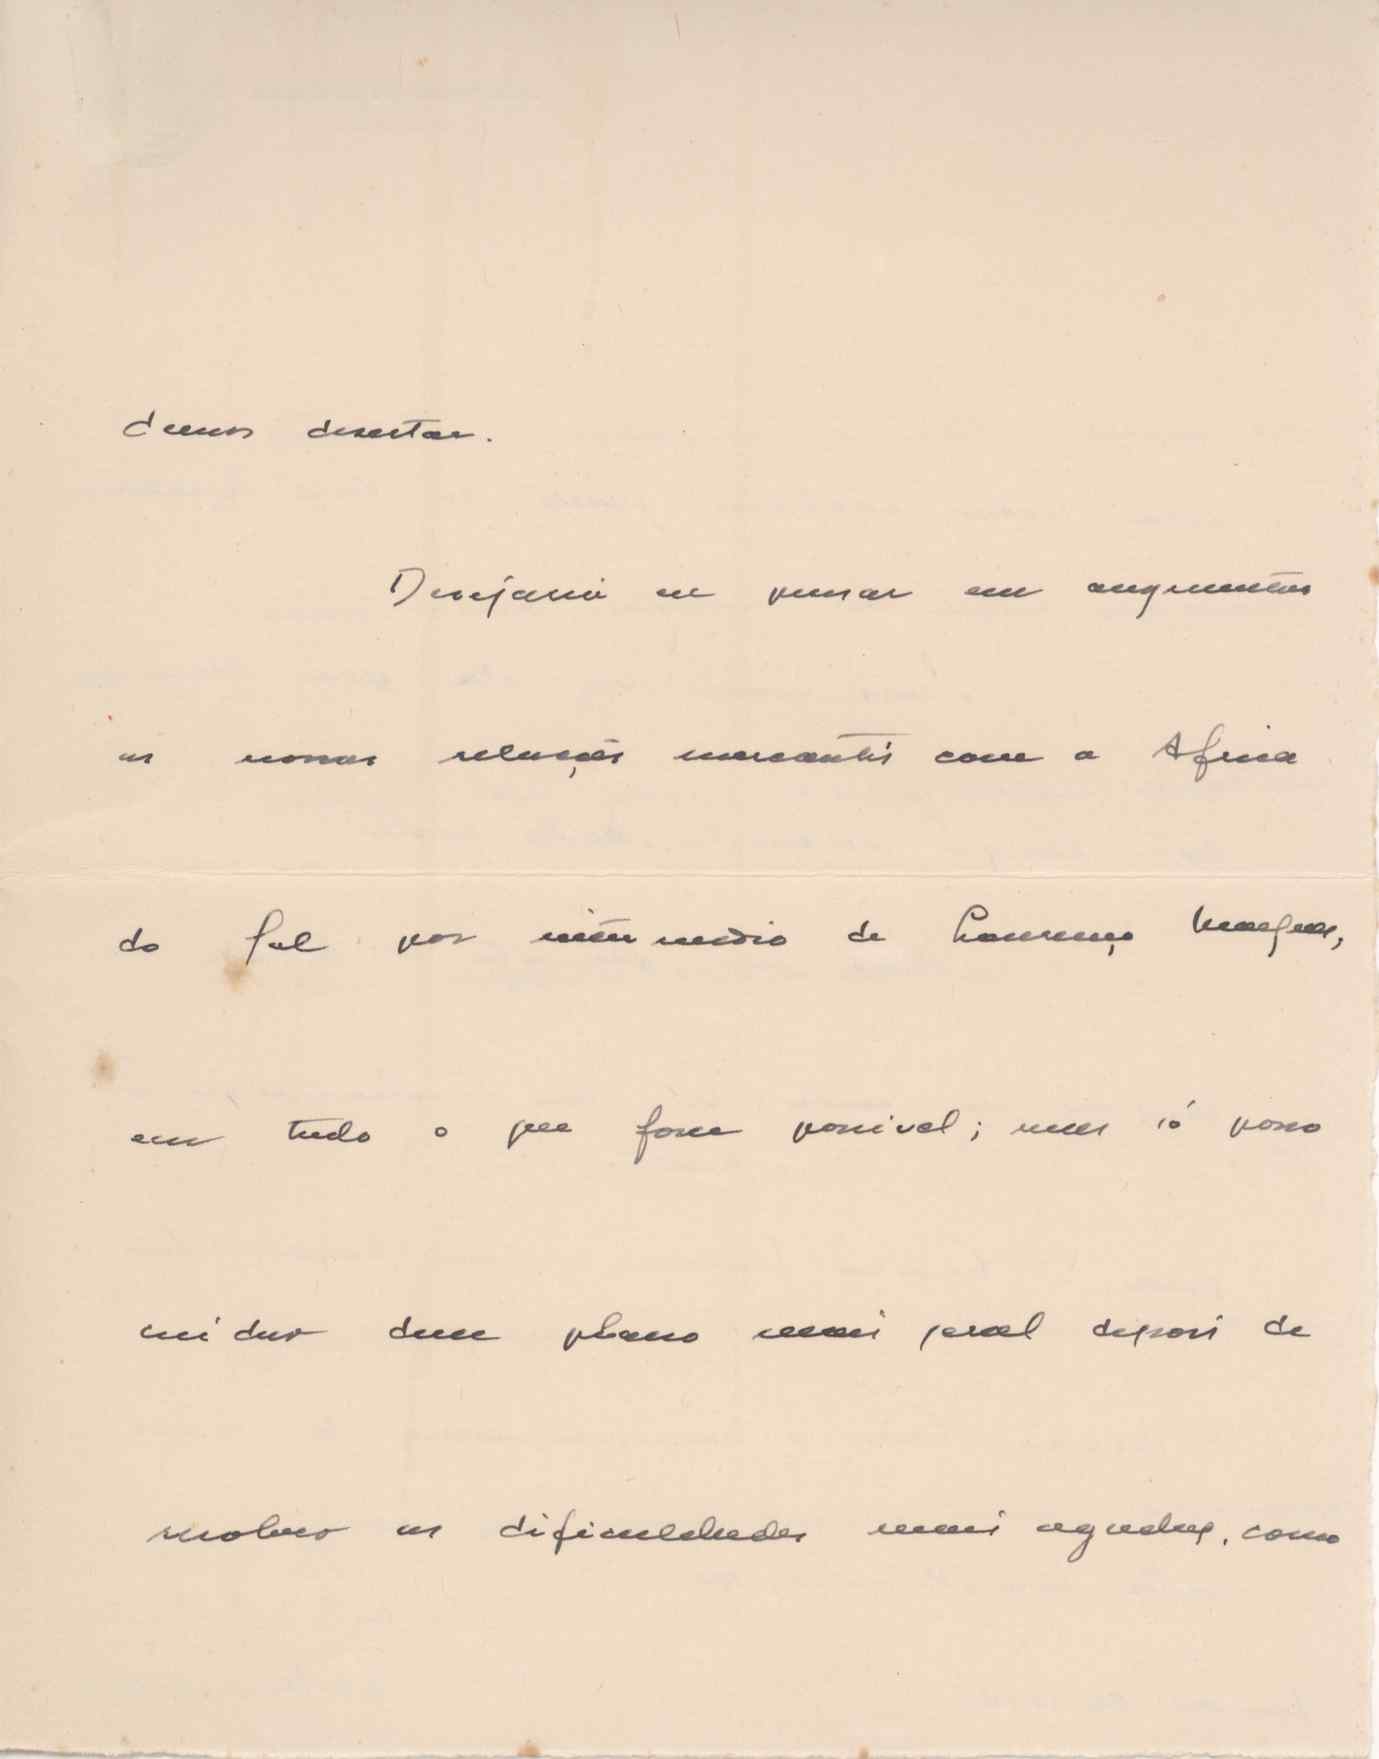 demos desertar.
Desejaria eu pensar em augmentar
as nossas relações mercantis com a Africa
do Sul por intermedio de Lourenço Marques,
em tudo o que fosse possivel; mas só posso
cuidar dum plano mais geral depois de
resolver as dificuldades mais agudas, como